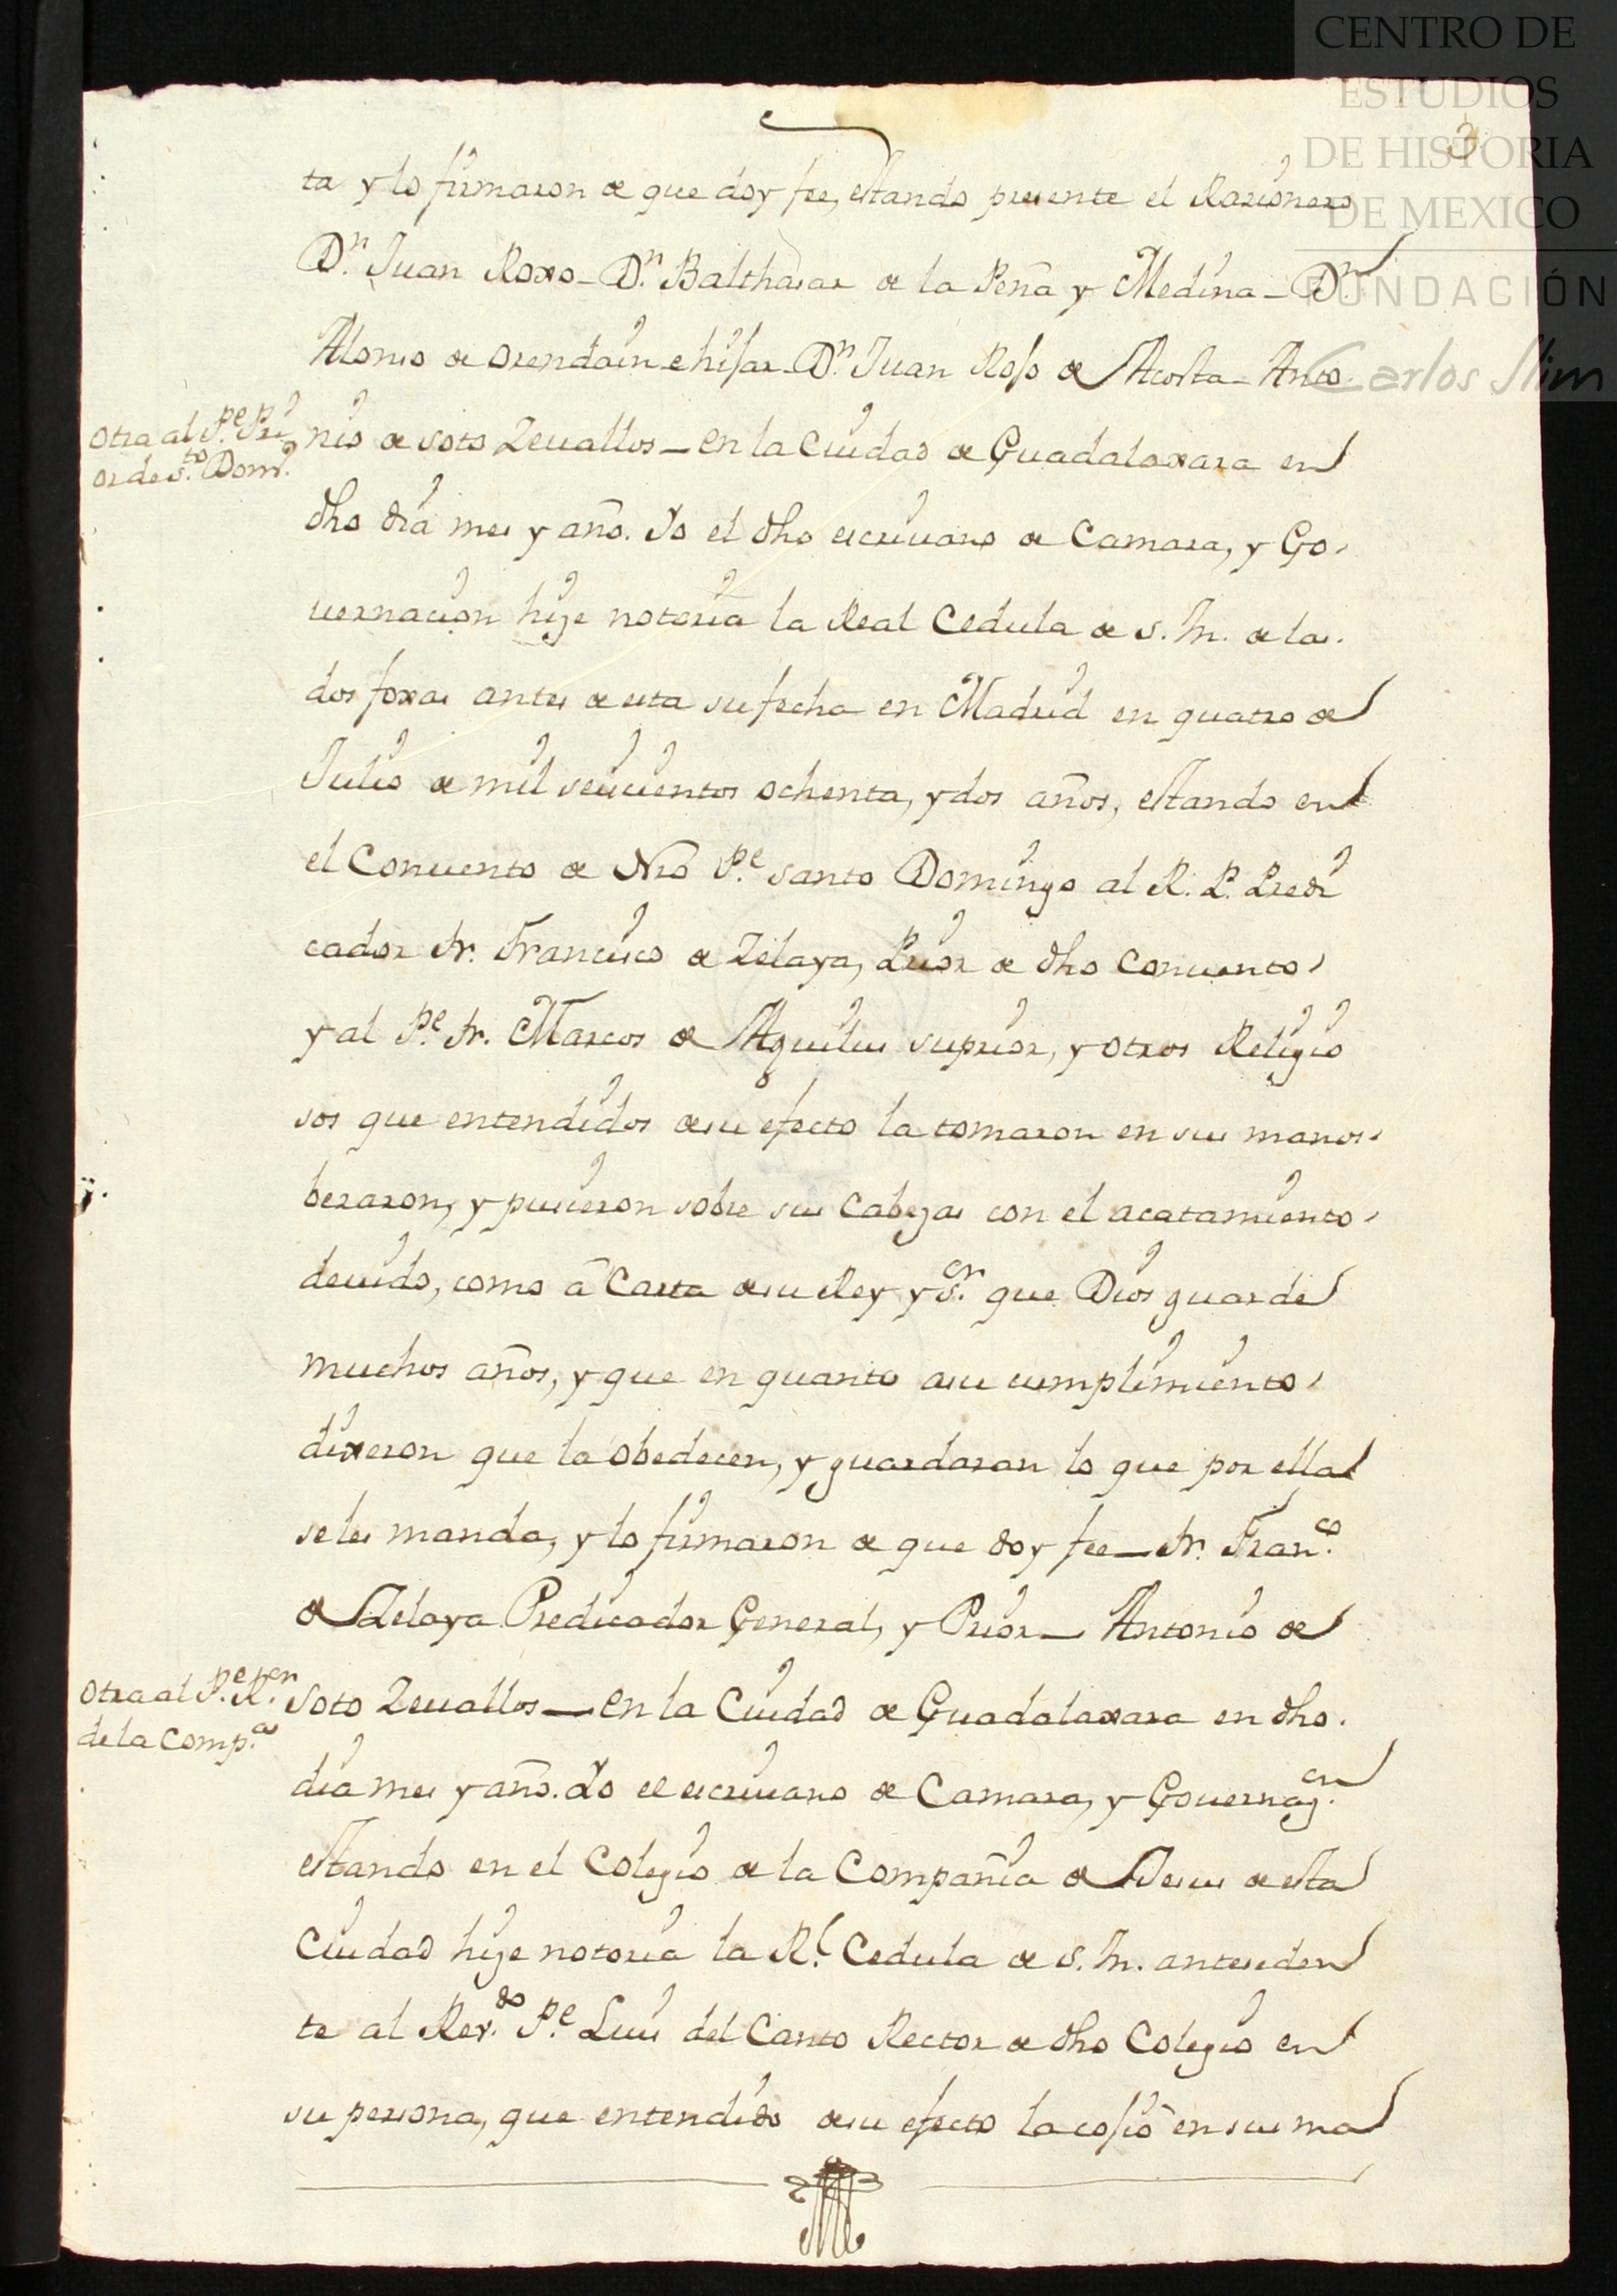 CENTRO DE
ESTUDIOS
DE HISTORIA
DE MEXICO
FUNDACIÓN
Carlos Slim
3
ta y lo firmaron de que doy fee, estando presente el Razionero
Dn. Juan Roxo - Dn. Balthasar de la Peña y Medina - Dn.
Alonso de Orendain e hijar - Dn. Juan Rojo de Acosta - Anto
Otra al Pe. Pri
or de sto. Domo.
nio de Soto Zeuallos - en la Ciudad de Guadalaxara en
dho dia mes y año. Yo el dho escriuano de Camara, y Go
uernacion hize notoria la Real Cedula de S. M. de las
dos foxas antes de esta su fecha en Madrid en quatro de
Julio de mil seiscientos ochenta, y dos años, estando en
el Conuento de Nro Pe. Santo Domingo al R. P. Predi
cador Fr. Francisco de Zelaya, Prior de dho Conuento
y al Pe. Fr. Marcos de Aguilus suprior, y otros Religio
sos que entendidos de su efecto la tomaron en sus manos
bezaron, y pusieron sobre sus Cabezas con el acatamiento
deuido, como â Carta de su Rey y Sr. que Dios guarde
muchos años, y que en quanto a su cumplimiento
dixeron que la obedecen, y guardaran lo que por ella
se les manda, y lo firmaron de que doy fee - Fr. Franco.
de Zelaya Predicador General, y Prior - Antonio de
Otra al Pe. Rer.
de la Compa.
Soto Zeuallos - en la Ciudad de Guadalaxara en dho
dia mes y año. Yo el escriuano de Camara, y Gouernaçon.
estando en el Colegio de la Compañia de Jesus de esta
Ciudad hize notoria la Rl. Cedula de S. M. anteceden
te al Revdo. Pe. Luis del Canto Rector de dho Colegio en
su persona, que entendido de su efecto la cojiô en sus ma